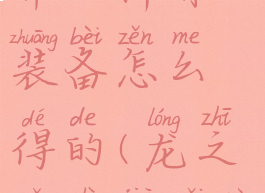 zhuāng bèi zěn me
装备怎么
dé de lóng zhī
得的(龙之